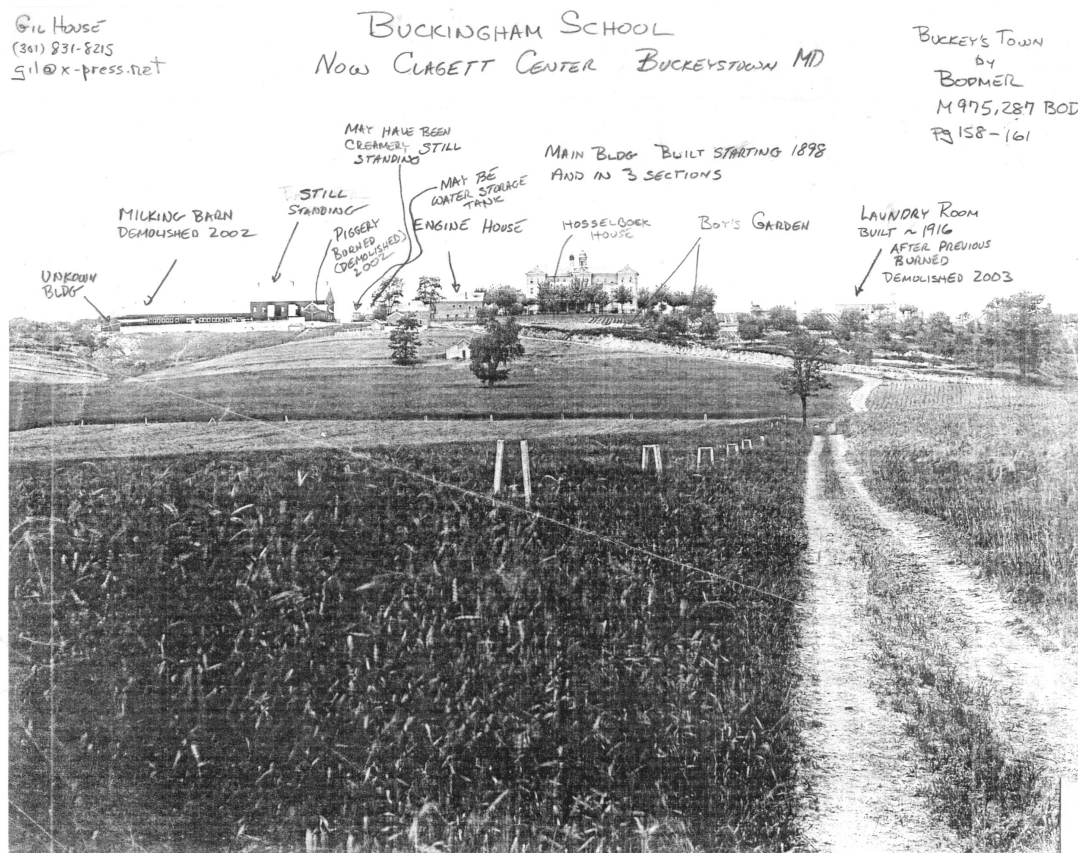 GIL HOUSE
(301) 831-8215
gil@x-press.net
BUCKINGHAM SCHOOL
NOW CLAGETT CENTER BUCKEYSTOWN MD
BUCKEY'S TOWN
by
BODMER
M 975,287 BOD
Pg 158-161
MAY HAVE BEEN
CREAMERY STILL
STANDING
MAY BE
WATER STORAGE
TANK
MAIN BLDG BUILT STARTING 1898
AND IN 3 SECTIONS
STILL
STANDING
MILKING BARN
DEMOLISHED 2002
PIGGERY
BURNED
(DEMOLISHED)
2002
ENGINE HOUSE
HOSSELBOEK
HOUSE
BOY'S GARDEN
LAUNDRY ROOM
BUILT ~ 1916
AFTER PREVIOUS
BURNED
DEMOLISHED 2003
UNKOWN
BLDG